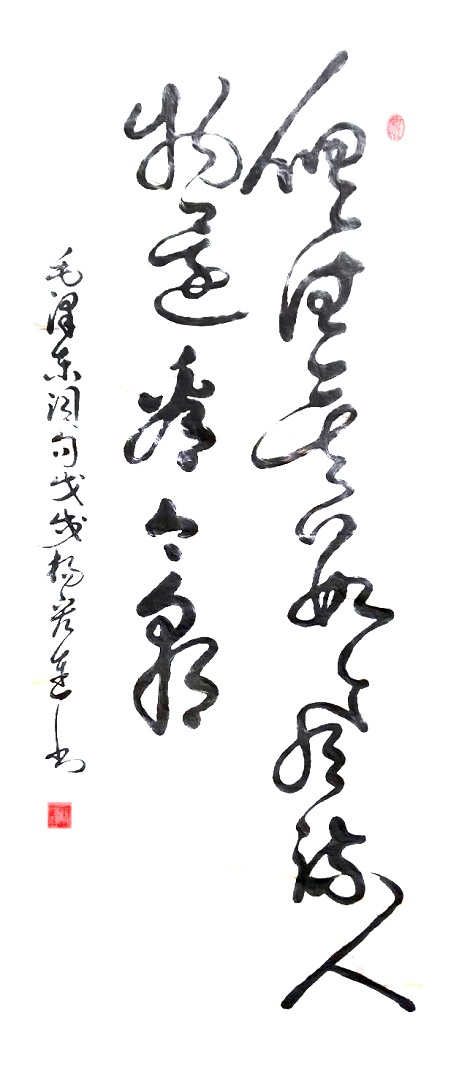 俱往矣数风流人
物还看今朝
毛泽东词句戊戌杨岩莲书